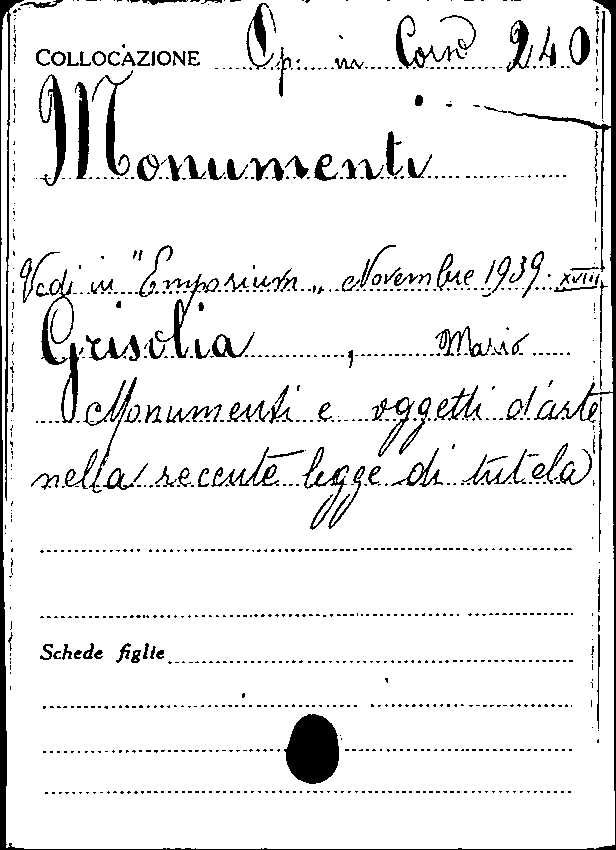 COLLOCAZIONE Op. in Corso 240
Monumenti
Vedi in "Emporium" Novembre 1939. XVIII
Grisolia, Mario
Monumenti e oggetti d'arte
nella recente legge di tutela
Schede figlie